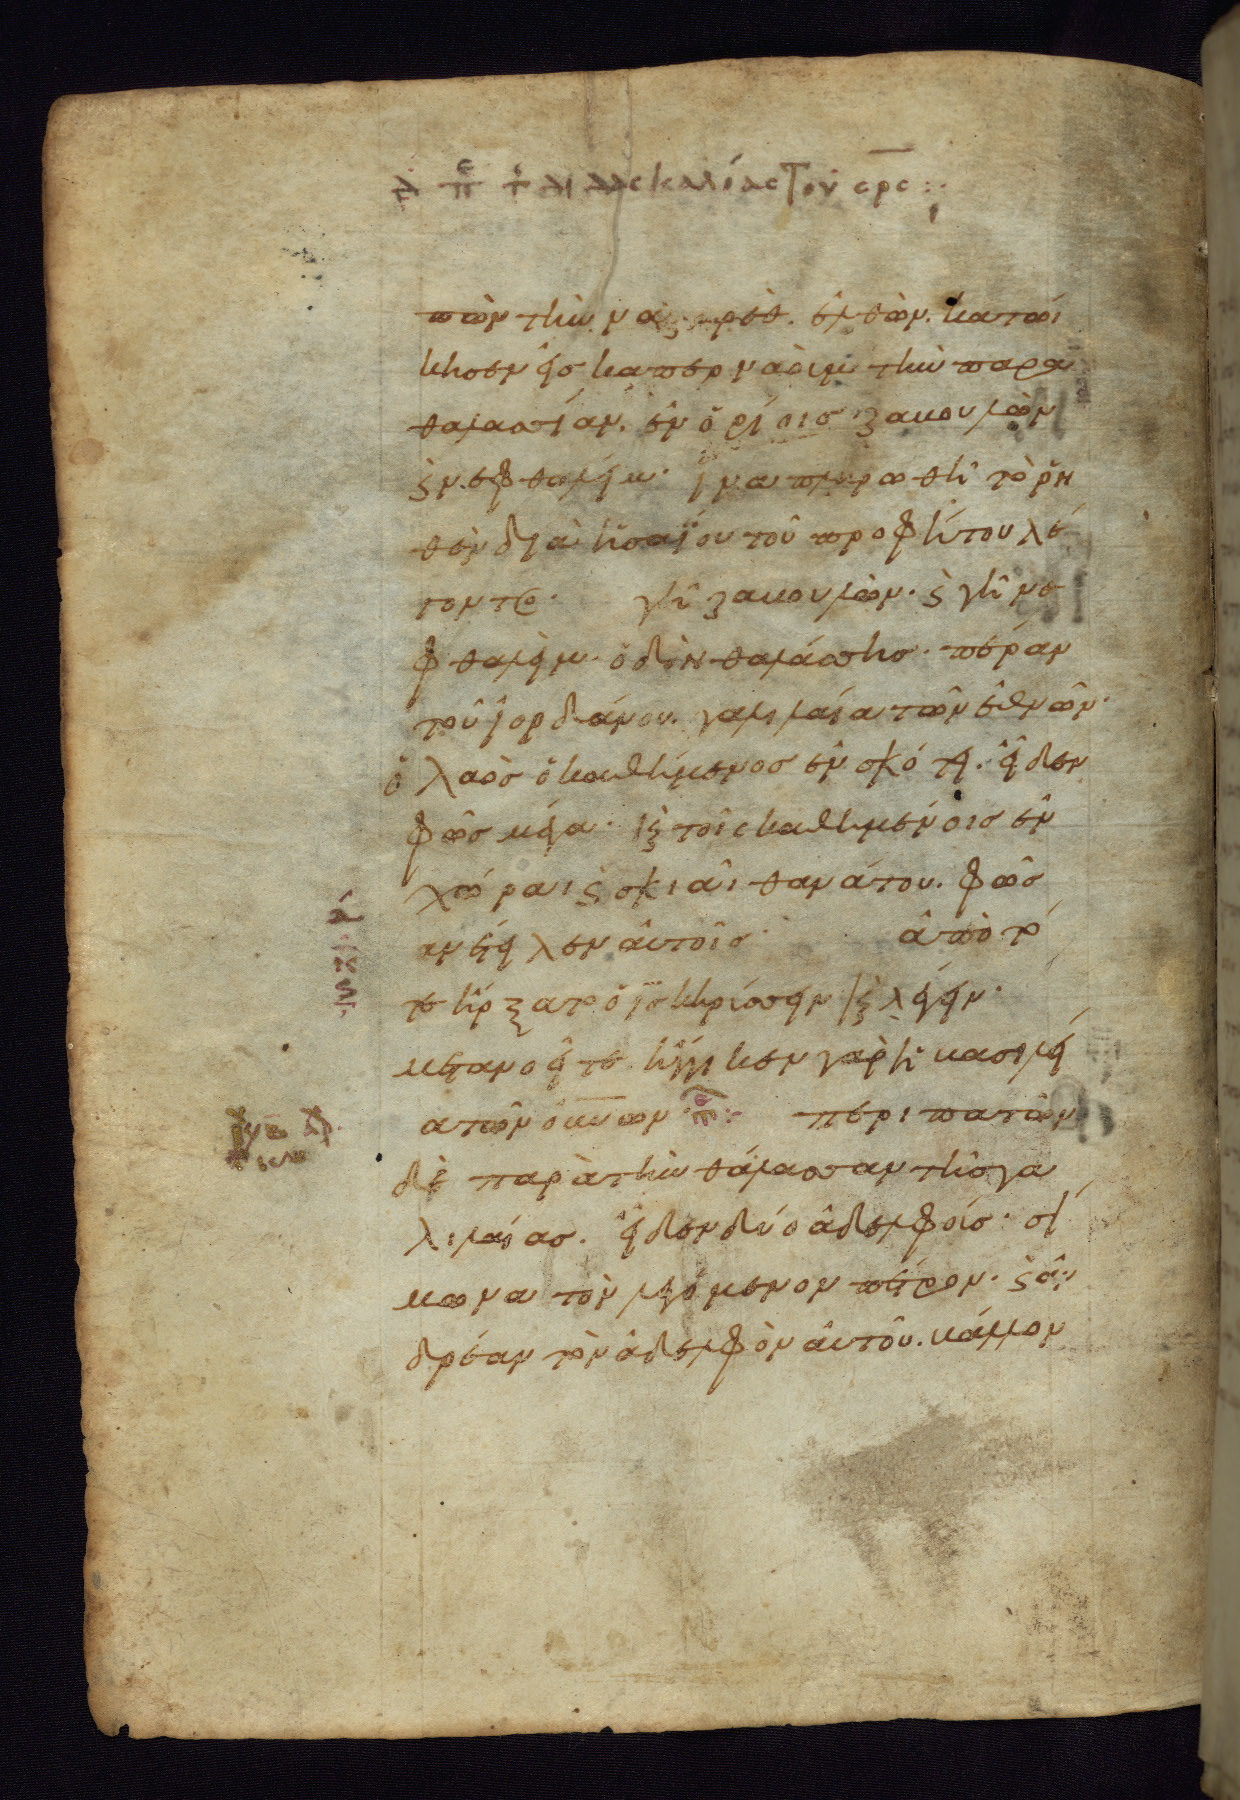 πὼν τὴν να ρέθ. ἐλθὼν. κατώι
κησεν εἰσ καπερναοὺμ τὴν παρα
θαλασσίαν. ἐν ὁρίοισ ζαβουλὼν
ϛ νεφθαλείμ. ἵνα πληρωθῆ τὸ ρη
θὲν διὰ ἡσαΐου τοῦ προφήτου λέ
γοντο. γῆ ζαβουλὼν. ϛ γῆ νε
φθαλείμ. ὁδὸν θαλάσσησ. πέραν
τοῦ ἰορδάνου. γαλιλαία τῶν ἐθνῶν.
ὁ λαὸσ ὁ καθήμενοσ ἐν σκότει. εἶδεν
φῶσ μέγα. ϗ τοῖς καθημένοισ ἐν
χώραι ϛ σκιᾶι θανάτου. φῶσ
ἀνέτειλεν αὐτοῖσ. ἀπὸ τό
τε ἤρξατο ὁ ἰσ κηρύσσειν ϗ λέγειν.
μετανοεῖτε. ἤγγικεν γὰρ ἡ βασιλεί
α τῶν οὐνων. περιπατῶν
δὲ παρὰ τὴν θάλασσαν τῆσ γα
λιλαίασ. εἶδεν δύο ἀδελφούσ. σί
μωνα τὸν λεγόμενον πέτρον. ϛ ἀν
δρέαν τὸν ἀδελφὸν αὐτοῦ. βάλλον